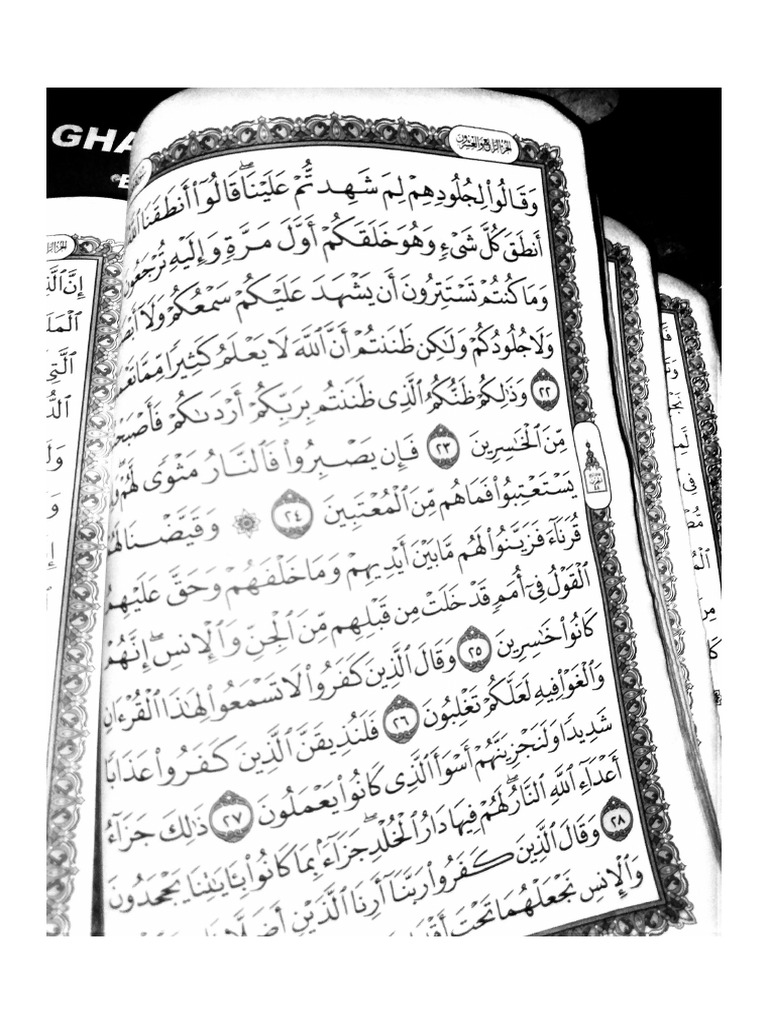 GHA
الجزء الرابع والعشرون
وَقَالُوا۟ لِجُلُودِهِمْ لِمَ شَهِدتُّمْ عَلَيْنَا ۖ قَالُوٓا۟ أَنطَقَنَا ٱللَّهُ
أَنطَقَ كُلَّ شَىْءٍ وَهُوَ خَلَقَكُمْ أَوَّلَ مَرَّةٍ وَإِلَيْهِ تُرْجَعُونَ
وَمَا كُنتُمْ تَسْتَتِرُونَ أَن يَشْهَدَ عَلَيْكُمْ سَمْعُكُمْ وَلَآ
وَلَا جُلُودُكُمْ وَلَـٰكِن ظَنَنتُمْ أَنَّ ٱللَّهَ لَا يَعْلَمُ كَثِيرًا مِّمَّا
٢٢ وَذَٰلِكُمْ ظَنُّكُمُ ٱلَّذِى ظَنَنتُم بِرَبِّكُمْ أَرْدَىٰكُمْ
مِّنَ ٱلْخَـٰسِرِينَ ٢٣ فَإِن يَصْبِرُوا۟ فَٱلنَّارُ مَثْوًى لَّهُمْ
يَسْتَعْتِبُوا۟ فَمَا هُم مِّنَ ٱلْمُعْتَبِينَ ٢٤ ۞ وَقَيَّضْنَا
قُرَنَآءَ فَزَيَّنُوا۟ لَهُم مَّا بَيْنَ أَيْدِيهِمْ وَمَا خَلْفَهُمْ وَحَقَّ عَلَيْهِمُ
ٱلْقَوْلُ فِىٓ أُمَمٍ قَدْ خَلَتْ مِن قَبْلِهِم مِّنَ ٱلْجِنِّ وَٱلْإِنسِ ۖ إِنَّهُمْ
كَانُوا۟ خَـٰسِرِينَ ٢٥ وَقَالَ ٱلَّذِينَ كَفَرُوا۟ لَا تَسْمَعُوا۟ لِهَـٰذَا ٱلْقُرْءَانِ
وَٱلْغَوْا۟ فِيهِ لَعَلَّكُمْ تَغْلِبُونَ ٢٦ فَلَنُذِيقَنَّ ٱلَّذِينَ كَفَرُوا۟ عَذَابًا
شَدِيدًا وَلَنَجْزِيَنَّهُمْ أَسْوَأَ ٱلَّذِى كَانُوا۟ يَعْمَلُونَ ٢٧ ذَٰلِكَ جَزَآءُ
أَعْدَآءِ ٱللَّهِ ٱلنَّارُ ۖ لَهُمْ فِيهَا دَارُ ٱلْخُلْدِ ۖ جَزَآءًۢ بِمَا كَانُوا۟ بِـَٔايَـٰتِنَا يَجْحَدُونَ
٢٨ وَقَالَ ٱلَّذِينَ كَفَرُوا۟ رَبَّنَآ أَرِنَا ٱلَّذَيْنِ
وَٱلْإِنسِ نَجْعَلْهُمَا تَحْتَ